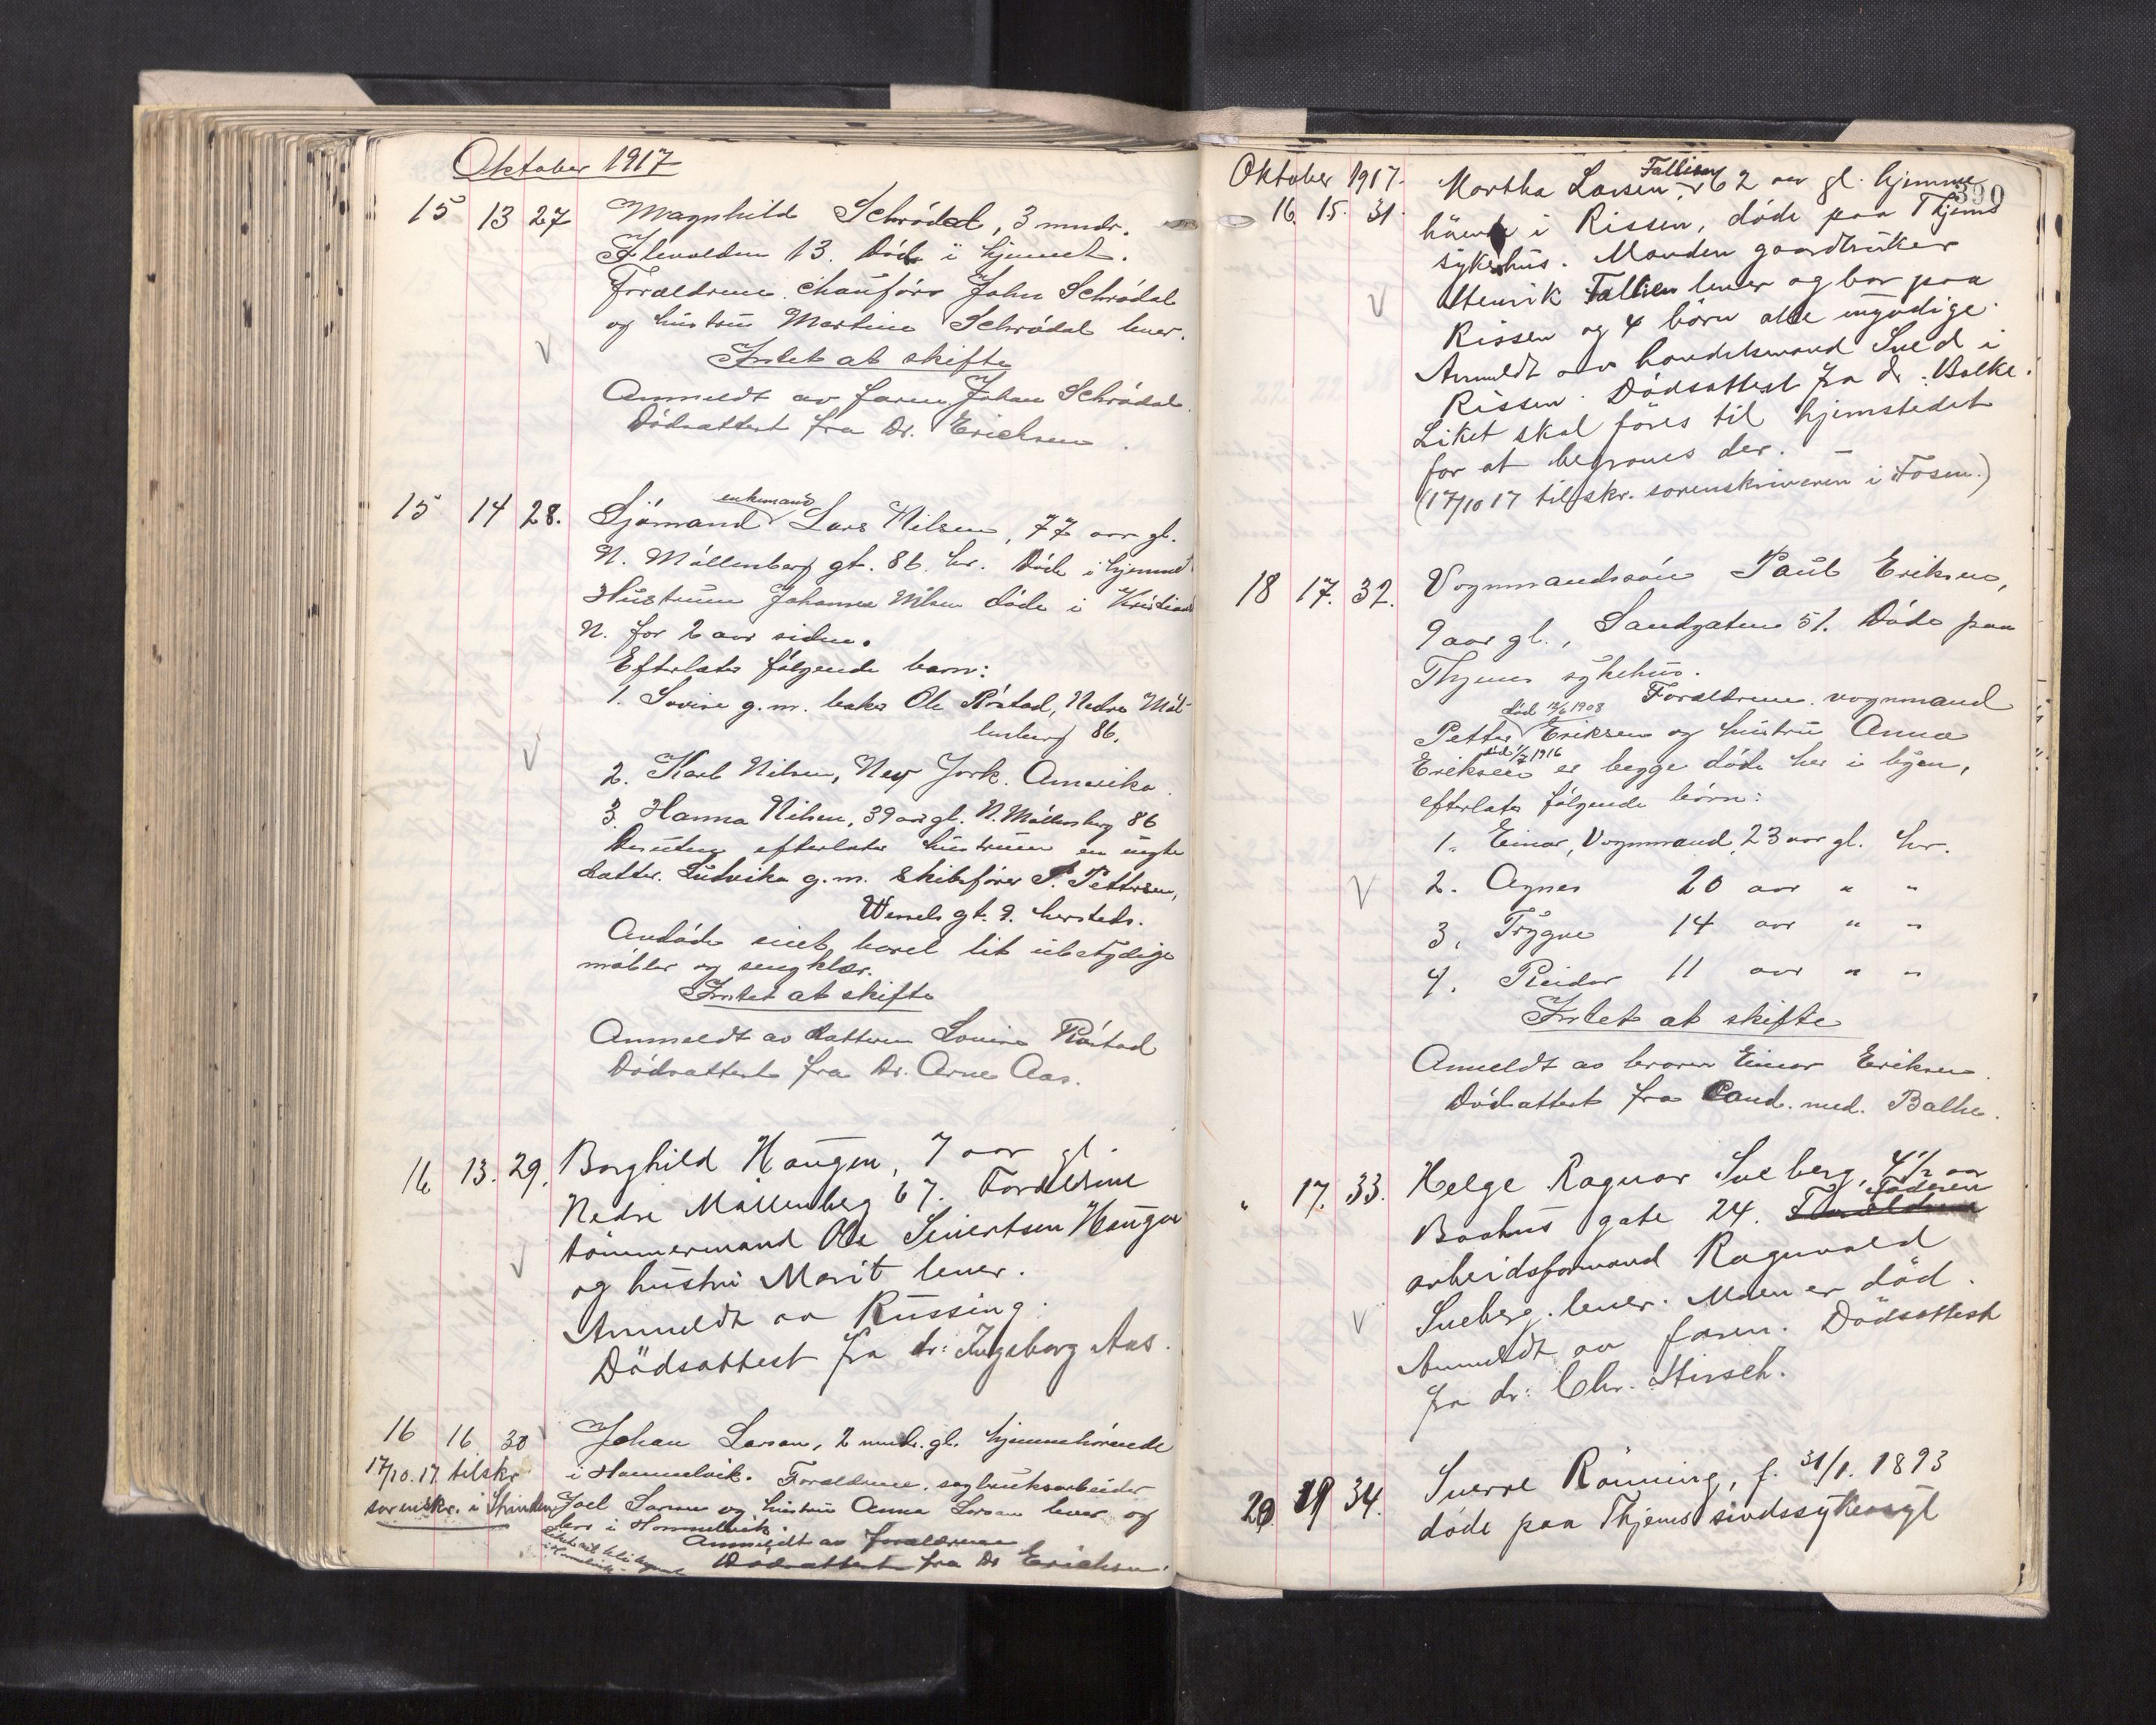 Oktober 1917
15 13 27 Magnhild Schrødal, 3 mndr.
Ilevolden 13. Døde i hjemmet.
Forældrene chauffør John Schrødal
og hustru Martine Schrødal lever.
Intet at skifte
Anmeldt av faren Johan Schrødal.
Dødsattest fra Dr. Erichsen.
15 14 28. Sjømand enkemand Lars Nilsen, 77 aar gl.
N. Møllenberg gt. 86. hr. Døde i hjemmet
Hustruen Johanna Nilsen døde i Kristians
N. for 2 aar siden.
Efterlater følgende barn:
1. Lovise g.m. baker Ole Røstad, Nedre Møl-
lenberg 86.
2. Karl Nilsen, New York. Amerika.
3. Hanna Nilsen, 39 aar gl. N. Møllenberg 86
Desuten efterlater hustruen en uegte
datter. Ludvika g.m. Skibsfører P. Pettersen,
Wessels gt. 9. hersteds.
Avdøde eiet havet litt ubetydelige
møbler og sengklær.
Intet at skifte
Anmeldt av datteren Lovise Røstad
Dødsattest fra Dr. Arne Aas.
16 13. 29. Borghild Haugen, 7 aar gl.
Nedre Møllenberg 67. Foreldrene
tømmermand Ole Sivertsen Haugen
og hustru Marit lever.
Anmeldt av Russing.
Dødsattest fra dr: Ingeborg Aas.
16 16 30 Johan Larsen, 2 mndr. gl. hjemmehørende
17/10.17 tilskr. i Hommelvik. Forældrene, sagbruksarbeider
sorenskr. i Strinden Joel Larsen og hustru Anna Larsen lever og
bor i Hommelvik.
Anmeldt av forældrene
Dødsattest fra Dr Erichsen.
390
Oktober 1917. Martha Larsen Fallien, 62 aar gl. hjemme
16. 15. 31. hörende i Rissen, döde paa Thjems
sykehus. Manden gaardbruker
Henrik Fallien lever og bor paa
Rissen og 4 börn alle myndige.
Anmeldt av handelsmand Sved i
Rissen. Dödsattest fra dr. Balke.
Liket skal föres til hjemstedet
for at begraves der. –
(17/10 17 tilskr. sorenskriveren i Fosen.)
18 17. 32. Vognmandssøn Paul Eriksen,
9 aar gl., Sandgaten 51. Døde paa
Thjems sykehus.
Forældrene. vognmand
Petter død 12/6 1908 Eriksen og hustru Anna
Eriksen død 1/7 1916 er begge døde her i byen,
efterlater følgende børn:
1. Einar, Vognmand, 23 aar gl. hr.
2. Agnes 20 aar " "
3. Trygve 14 aar " "
4. Reidar 11 aar " "
Intet at skifte
Anmeldt av broren Einar Eriksen.
Dødsattest fra Cand. med. Balke.
" 17. 33. Helge Ragnar Sveberg, 4 1/2 aar
Baahus gate 24. Foreldrene Faderen
arbeidsformand Ragnvald
Sveberg lever. Moren er död.
Anmeldt av faren. Dödsattest
fra dr: Chr. Hirsch.
20 19 34. Sverre Rönning, f. 31/1. 1893
döde paa Thjems sindssykeasyl